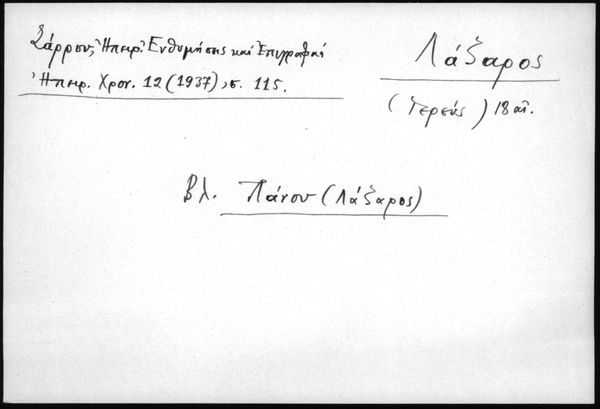 Σάρρου, Ἠπειρ. Ἐνθυμήσεις καὶ Ἐπιγραφαί
Ἠπειρ. Χρον. 12 (1937), σ. 115.
Λάζαρος
(Ἱερεύς) 18 αἰ.
Βλ. Πάνου (Λάζαρος)